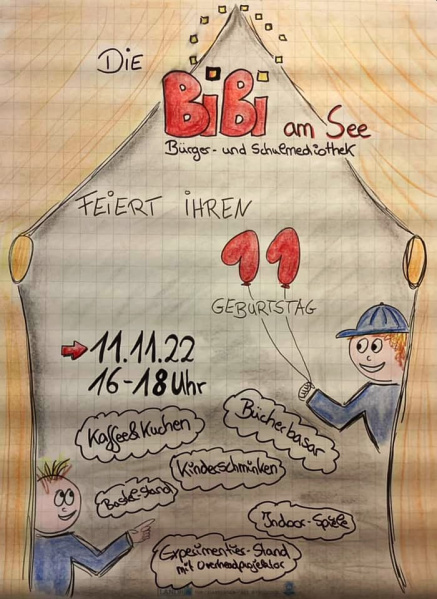 Die
BiBi am See
Bürger- und Schulmediothek
FEIERT IHREN
11
GEBURTSTAG
11.11.22
16-18 Uhr
Kaffee&Kuchen
Bücherbasar
Kinderschminken
Bastel-Stand
Indoor-Spiele
Experimentier-Stand
mit Overheadprojektor